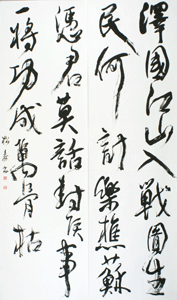 澤國江山入戰圖生
民何計樂樵蘇
憑君莫話封侯事
一將功成萬骨枯